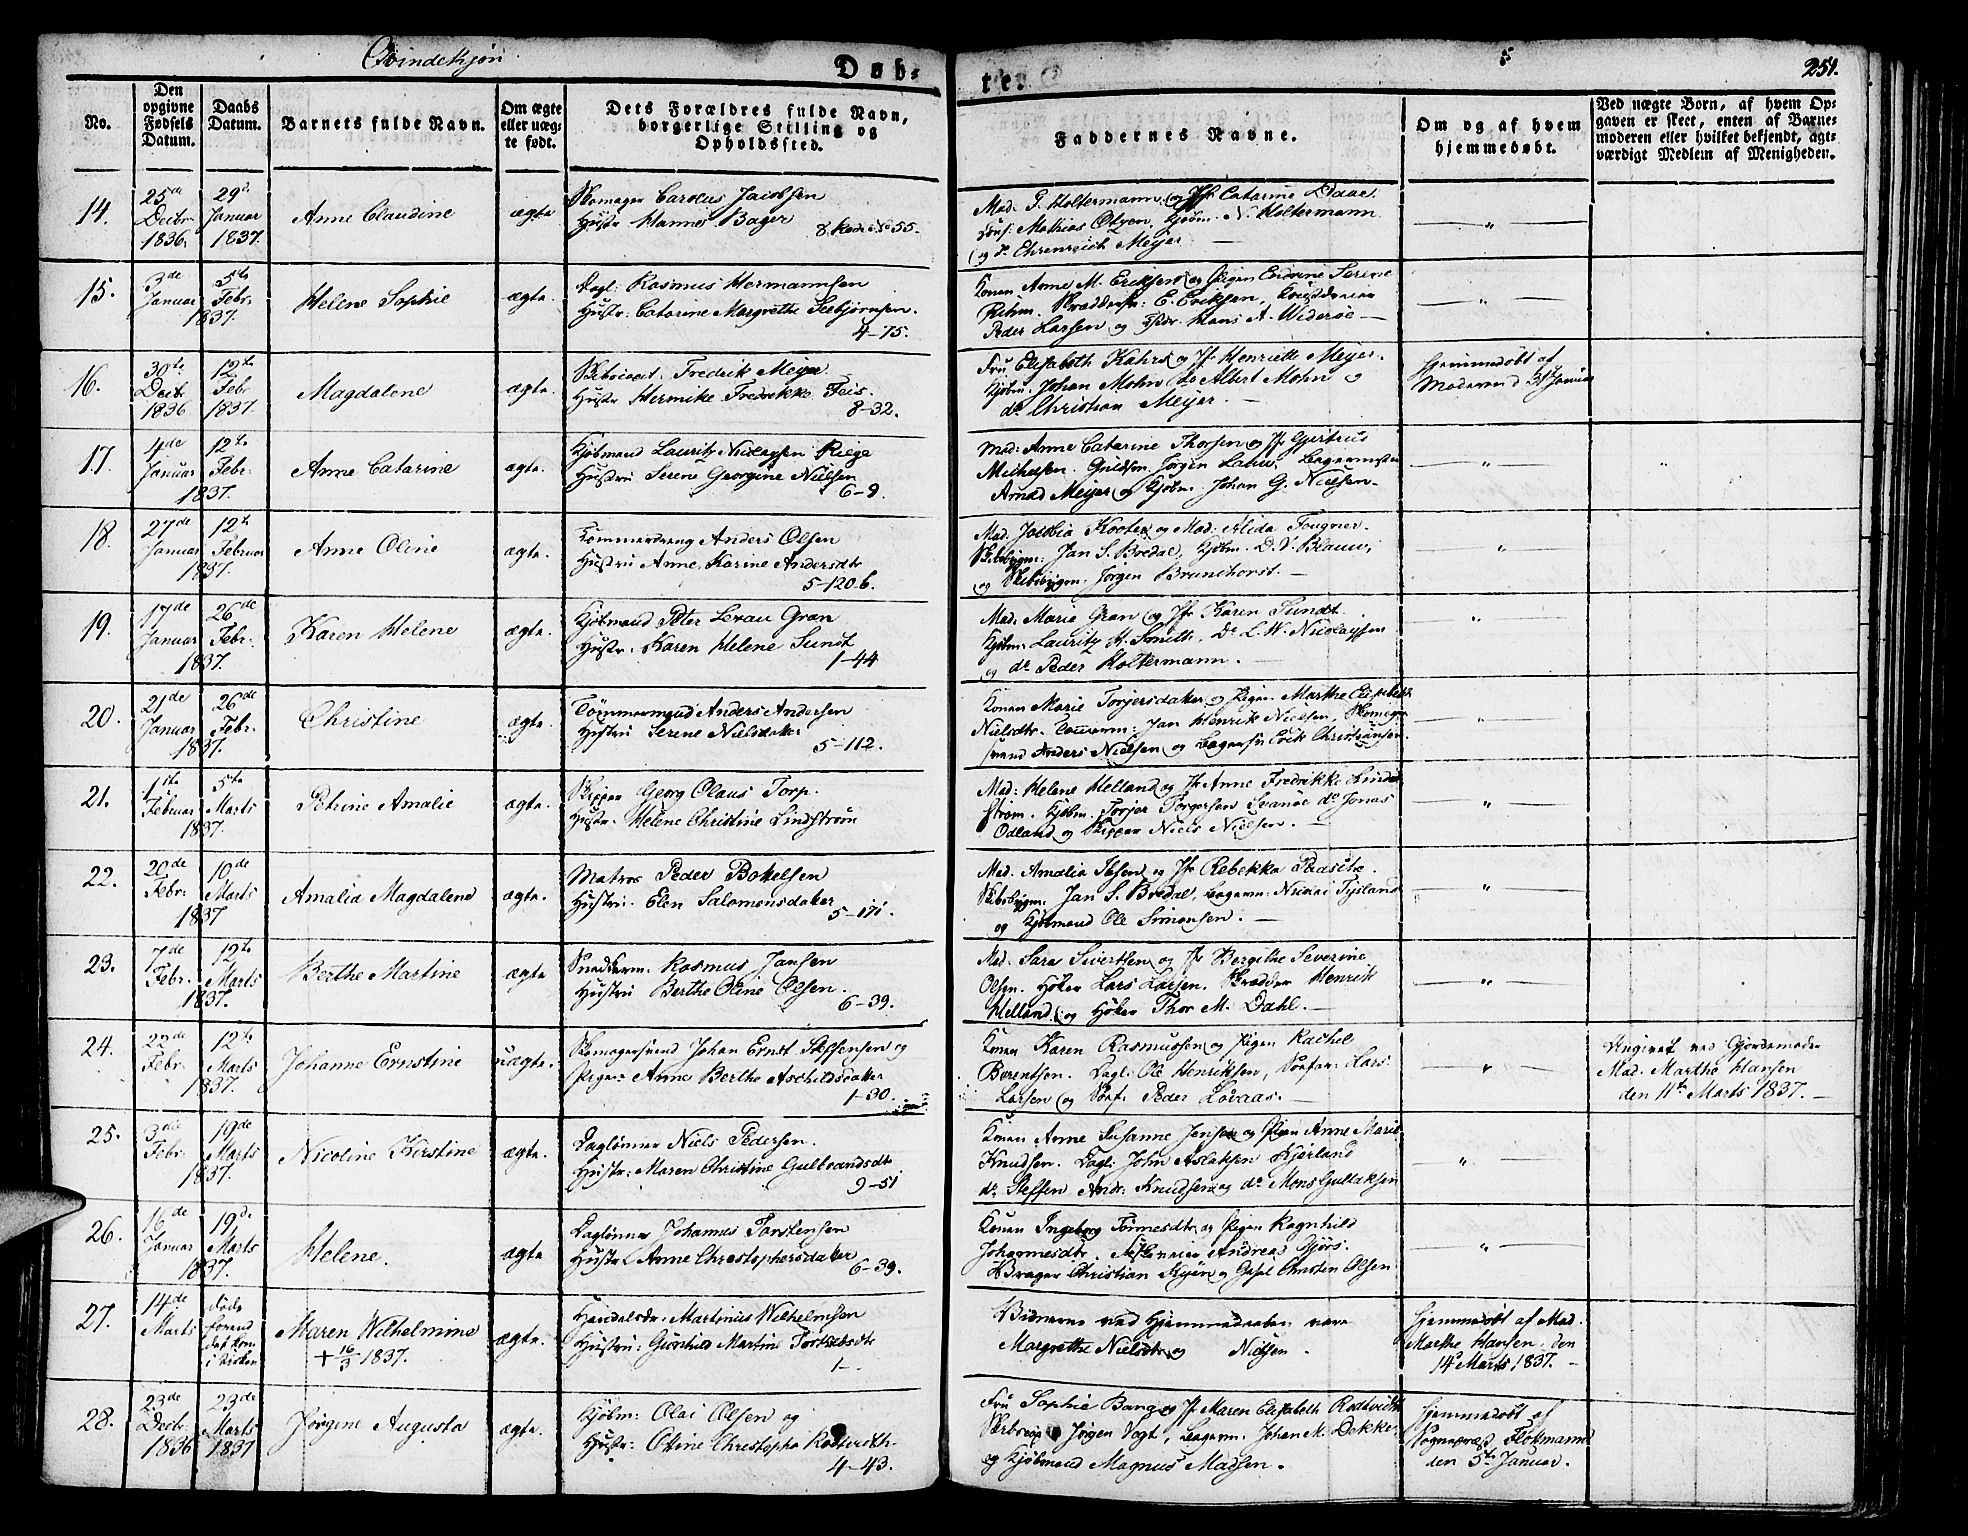 Qvindekjøn
Døb-
te.
251.
No.
Den opgivne Fødsels Datum.
Daabs Datum.
Barnets fulde Navn.
Om ægte eller uægte født.
Dets Forældres fulde Navn, borgerlige Stilling og Opholdssted.
Faddernes Navne.
Om og af hvem hjemmedøbt.
Ved uægte Born, af hvem Opgaven er skeet, enten af Barnemoderen eller hvilket bekjendt, agtværdigt Medlem af Menigheden.
14.
25de Decbr 1836.
29de Januar 1837.
Anne Claudine
ægte
Skomager Carolus Jacobsen
Hustr. Hanne Bager
8. Rode No 55.
Mad. P. Holtermann og Jfr Catarine Daae.
Mathias Olsen Kjøbm. N. Holtermann
og do Ehrenreich Meyer
15.
3de Januar
5te Febr. 1837.
Helene Sophie
ægte.
Dagl: Rasmus Hermannsen
Hustr: Catarine Margrethe Seebjørnsen.
4-75.
Konen Anne M. Eriksen og Pigen Endrine Serene
Rehm. E. Eriksen,
Peder Larsen og Hans A. Widerøe
16.
30te Decbr 1836
12te Febr 1837.
Magdalene
ægte.
Fredrik Meyer
Hustr Hermike Fredrikke Feis.
8-32.
Fru Elisabeth Kahrs og Jfr Henriette Meyer.
Kjøbm. Johan Mohn do Albert Mohn og
do Christian Meyer.
Hjemmedøbt af
Moderen d 31te Januar
17.
4de Januar
12te Febr. 1837.
Anne Catarine
ægte.
Kjøbmand Lauritz Nicolaysen Riege
Hustru Serene Georgine Nielsen
6-9.
Mad: Anne Catarine Thorsen og Jfr Gjertrus
Michelsen. Guldsm. Jørgen Bagermester
Arnold Meyer og Kjøbm. Johan G. Nielsen
18.
27de Januar
12te Februar 1837.
Anne Oline
ægte.
Tømmerdreng Anders Olsen
Hustru Anne Karine Andersdtr
5-120 b.
Mad. Jacobia Kooter og Mad: Alida Fougner.
Skibsbygm: Jan S. Bredal, Kjøbm. D. V. Blauw,
og Skibsbygm. Jørgen Brunchorst.
19.
17de Januar
26de Febr. 1837.
Karen Helene
ægte.
Kjøbmand Peter Gran
Hustr. Karen Helene Sundt
1-44
Mad. Marie Gran og Jfr Karen Sundt.
Kjøbm: Lauritz H. Smitt, Do L. W. Nicolaysen
og do Peder Holtermann.
20.
21de Januar
26de Febr. 1837.
Christine
ægte.
Tømmermand Anders Andersen
Hustru Serene Nielsdatter
5-112.
Konen Marie Torjersdatter og Pigen Marthe Elisabeth
Nielsdtr. Tømmerm: Jan Henrik Nielsen, Skomager
svend Anders Nielsen og Bagersv Erik Christiansen.
21.
1ste Februar
5te Marts 1837.
Petrine Amalie
ægte.
Skipper Georg Olaus Torp.
Hustr. Helene Christine Lindstrøm
Mad: Helene Helland og Jfr Anne Fredrikke Lind
strøm. Kjøbm. Torjer Torgersen Svanøe do Jonas
Odland og Skipper Niels Nielsen.
22.
20de Febr.
10de Marts 1837
Amalia Magdalene
ægte.
Matros Peder Bottelsen
Hustru. Elen Salomonsdatter
5-171.
Mad. Amalia Ibsen og Jfr Rebekka Paasche
Skibsbygm: Jan S. Bredal, Bagerm: Nicolai Tysland
og Kjøbmand Ole Simonsen.
23.
7de Febr.
12te Marts 1837.
Berthe Martine
ægte
Snedkerm. Rasmus Jansen
Hustru Berthe Oline Olsen.
6-39.
Mad. Sara Sivertsen og Jfr Bergithe Severine
Olsen. Høker Lars Larsen. Skrædder Henrik
Helland og Høker Thor M. Dahl.
24.
22de Febr.
12te Marts 1837.
Johanne Ernstine
uægte.
Skomagersvend Johan Ernst Steffensen og
Pigen: Anne Berthe Aschildsdatter
1-30.
Konen Karen Rasmussen og Pigen Rachel
Berentsen. Dagl: Ole Henriksen, Lars
Larsen og Peder Lovaas.
Angivet ved Gjordemoder
Mad. Marthe Hansen
den 11te Marts 1837.
25.
3die Febr.
19de Marts 1837.
Nicoline Kirstine
ægte.
Daglønner Niels Pedersen.
Hustr. Maren Christine Gulbrandsdtr
9-51
Konen Anne Susanne Jensen og Pigen Anne Marie
Knudsen. Dagl: John Aslaksen Kjerland
do Steffen Andr. Knudsen og do Mons Gullaksen
26.
16de Januar
19de Marts 1837.
Helene.
ægte
Daglønner Johannes Torstensen
Hustr. Anne Christophersdatter
6-39.
Konen Ingeborg Tormesdtr og Pigen Ragnhild
Johannesdtr. Andreas Gjørs.
Christian og Christen Olsen
27.
14de Marts
døde forend det kom i Kirken
Maren Wilhelmine
+ 16/3 1837.
ægte.
Handelsdr. Martinus Wilhelmsen
Hustru: Gunhild Martin
1-
Vidnerne ved Hjemmedaaben vare
Margrethe Nielsdtr og Nielsen.
Hjemmedøbt af Mad.
Marthe Hansen, den
14de Marts 1837.
28.
23de Decbr 1836
23de Marts 1837
Jørgine Augusta
ægte.
Kjøbm: Olai Olsen og
Hustr: Oline Christopha
4-43.
Fru Sophie Bang og Jfr Maren Elisabeth
Jørgen Vogt, Bagerm. Johan M. Dekke
og Kjøbmand Magnus Madsen.
Hjemmedøbt af
Sognepræst Flottmann
den 5te Januar.